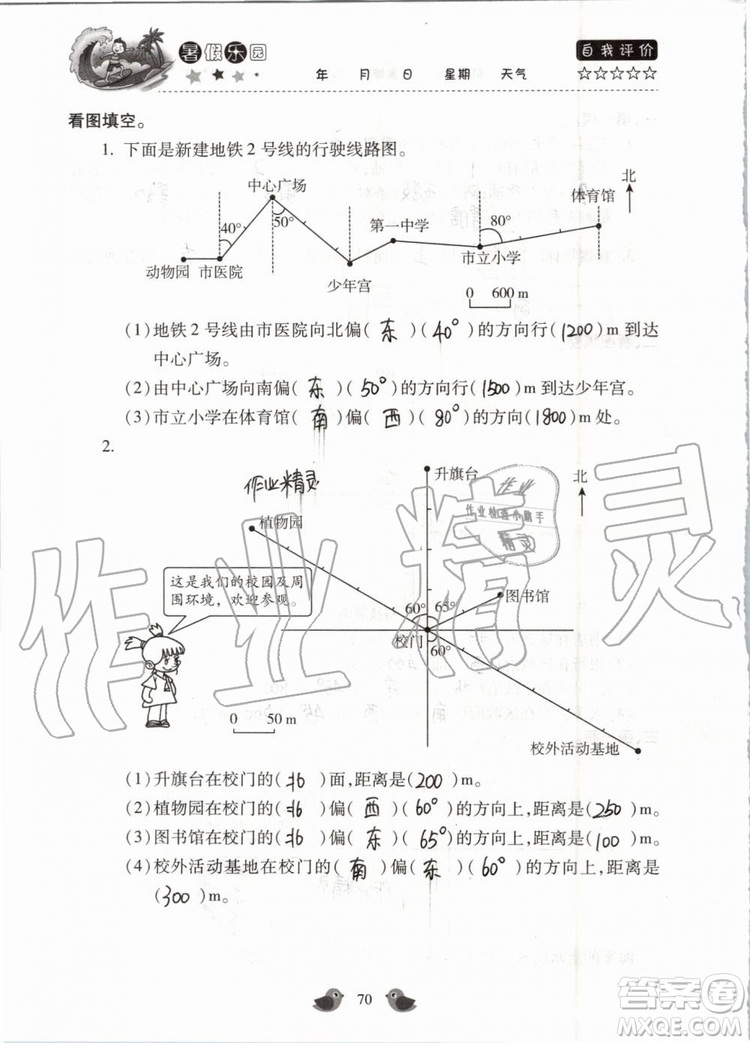 暑假乐园
自我评价
年 月 日 星期 天气 ☆☆☆☆☆
看图填空。
1. 下面是新建地铁2号线的行驶线路图。
中心广场
北
体育馆
40°
50°
第一中学
80°
动物园 市医院
市立小学
少年宫
0 600 m
(1)地铁2号线由市医院向北偏( 东 )( 40° )的方向行( 1200 )m到达
中心广场。
(2)由中心广场向南偏( 东 )( 50° )的方向行( 1500 )m到达少年宫。
(3)市立小学在体育馆( 南 )偏( 西 )( 80° )的方向( 1800 )m处。
2.
升旗台
北
作业精灵
植物园
作业检查小助手
精灵
这是我们的校园及周
围环境，欢迎参观。
图书馆
60° 65°
校门
60°
0 50 m
校外活动基地
(1)升旗台在校门的( 北 )面，距离是( 200 )m。
(2)植物园在校门的( 北 )偏( 西 )( 60° )的方向上，距离是( 250 )m。
(3)图书馆在校门的( 北 )偏( 东 )( 65° )的方向上，距离是( 100 )m。
(4)校外活动基地在校门的( 南 )偏( 东 )( 60° )的方向上，距离是
( 300 )m。
作业精灵
70
答案圈
MXQE.COM